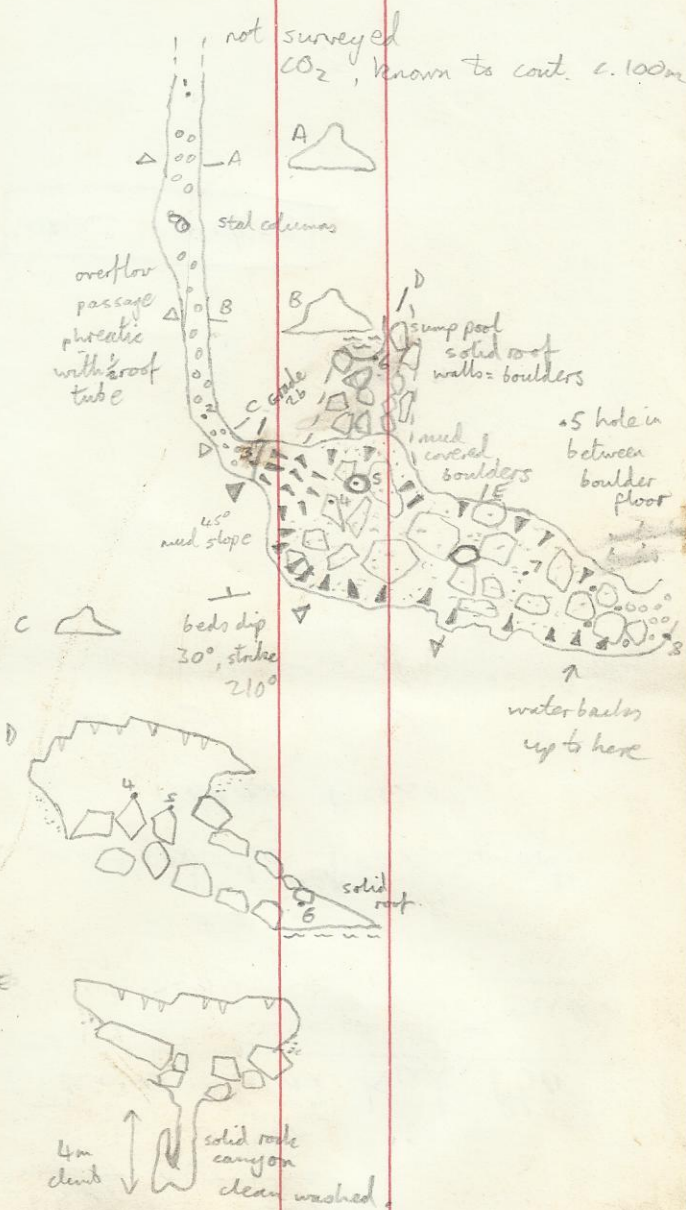 not surveyed
CO₂, known to cont. c. 100m
A
A
stal columns
overflow
passage
phreatic
with ½ roof
tube
B
B
D
sump pool
solid roof
walls = boulders
6
Grade
2b
C
2
3
mud
covered
boulders
•5 hole in
between
boulder
floor
5
4
E
7
8
45°
mud slope
C
beds dip
30°, strike
210°
water backs
up to here
D
4
5
6
solid
roof
E
4m
climb
solid rock
canyon
clean washed.